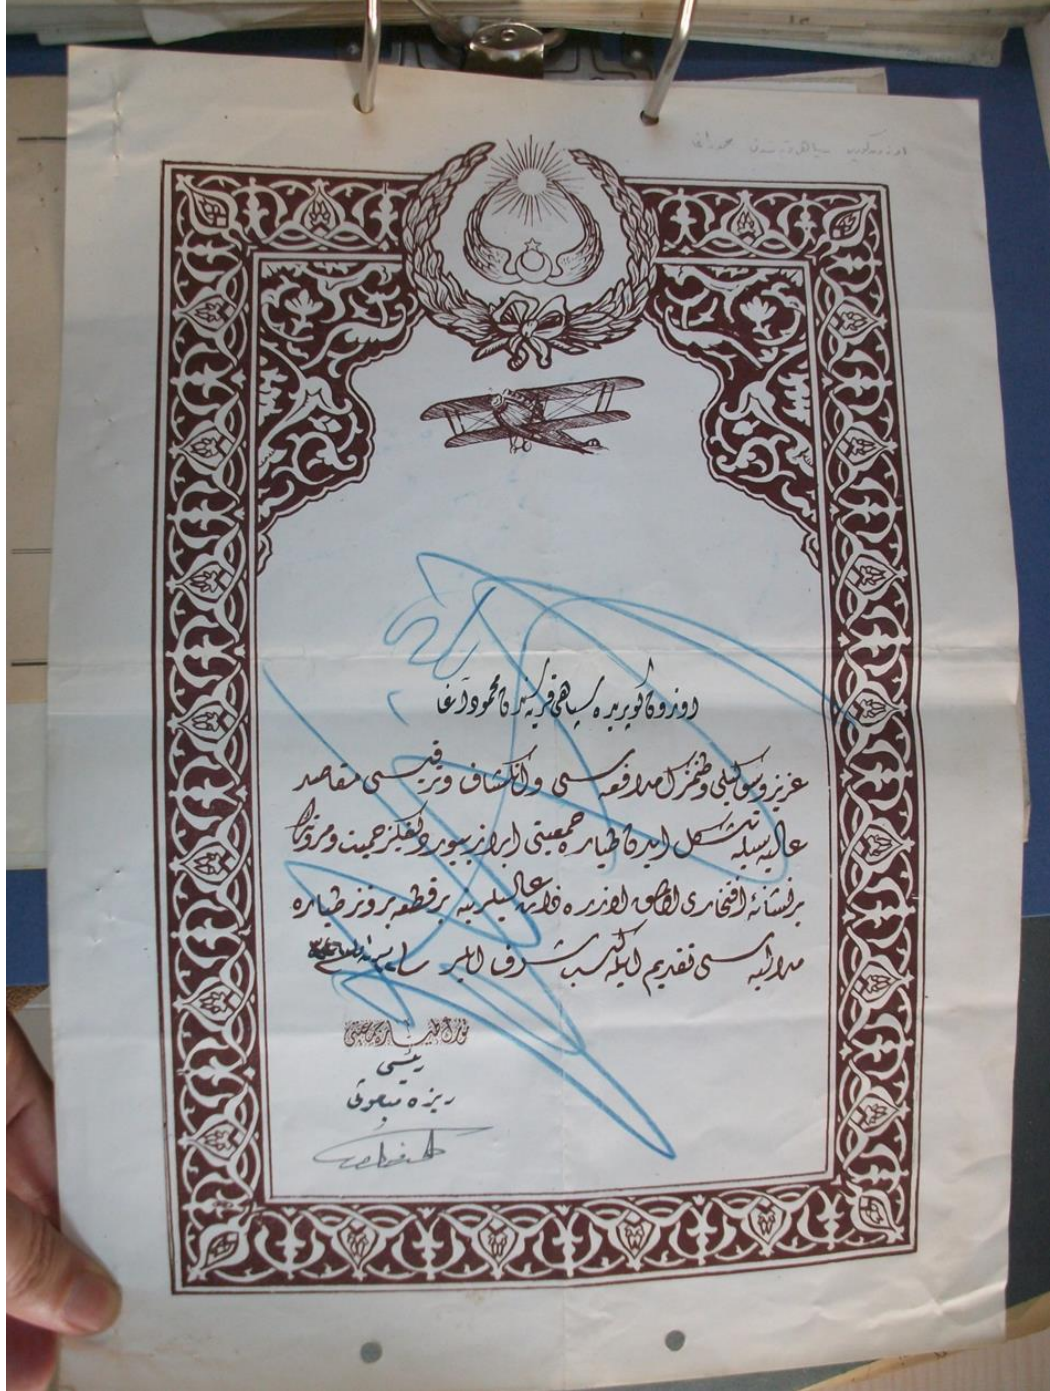 اوزون كوپریده سپاهی قریه سندن محمود آغا
عزیز وسوكیلی وطنمزك مدافعه سی وانكشاف وترقیسی مقاصد
عالیه سیله تشكل ایدن طیاره جمعیتی ابراز بیوردیغكز حمیت ومروتك
بر نشانهٔ افتخاری اولمق اوزره ذات عالیلرینه بر قطعه برونز طیاره
مدالیه سی تقدیم ایله كسب شرف ایلر
تورك طیاره جمعیتی
رئیسی
ریزه مبعوثی